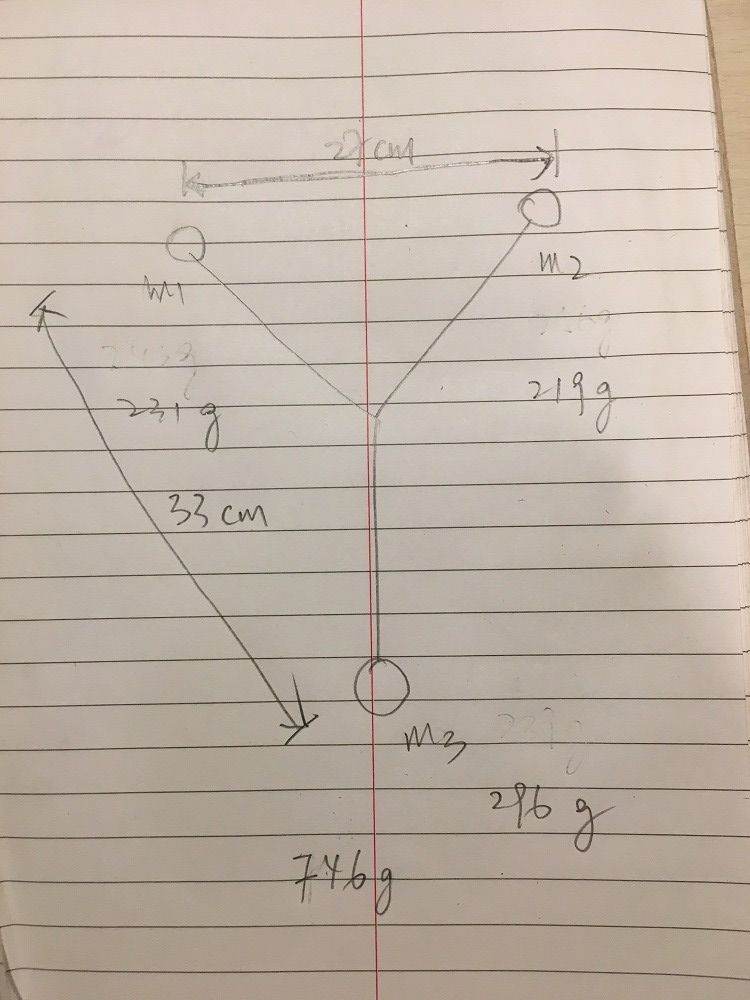 27cm
m1
m2
231g
219g
33 cm
m3
296 g
746g